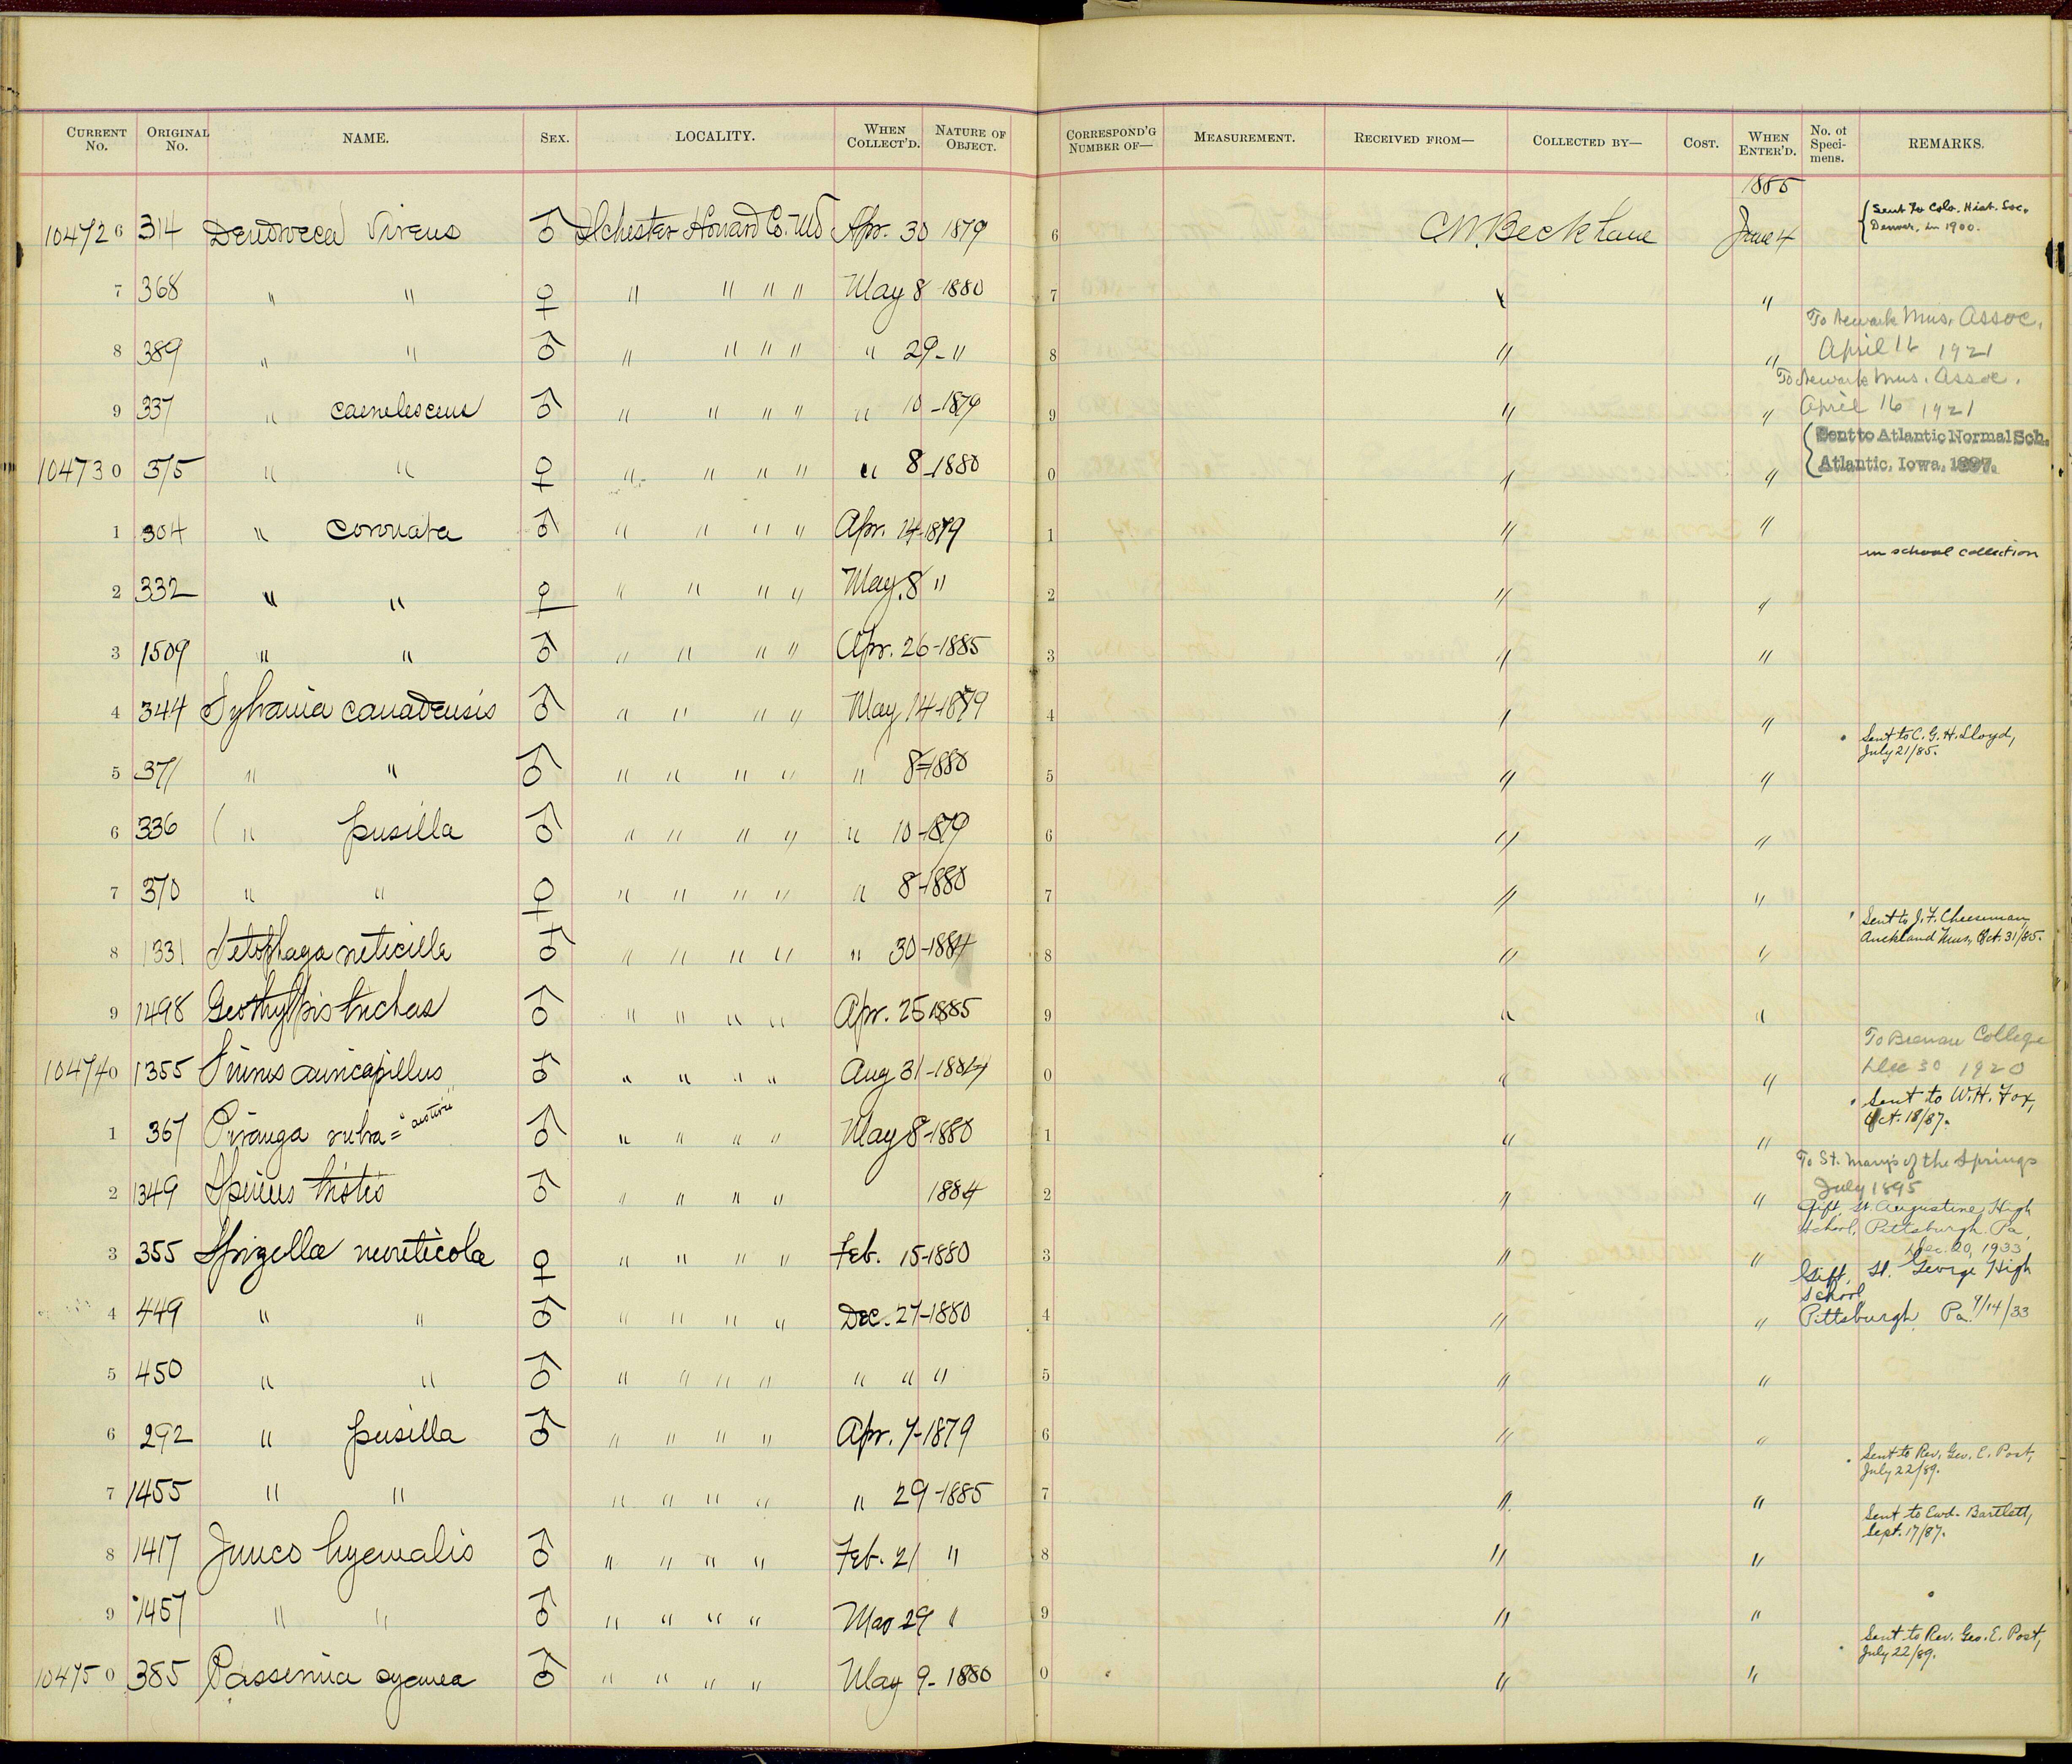 CURRENT No. ORIGINAL No. NAME. SEX. LOCALITY. WHEN COLLECT'D. NATURE OF OBJECT. CORRESPOND'G NUMBER OF— MEASUREMENT. RECEIVED FROM— COLLECTED BY— COST. WHEN ENTER'D. No. of Specimens. REMARKS.
1885
104726 314 Dendroeca virens ♂ Ilchester Howard Co. Md Apr. 30 1879 6 C.W. Beckham June 4 { Sent to Colo. Hist. Soc. Denver, in 1900.
7 368 " " ♀ " " " " May 8 -1880 7 " "
8 389 " " ♂ " " " " " 29 - " 8 " " To Newark Mus. Assoc. April 16 1921
9 337 " caerulescens ♂ " " " " " 10 -1879 9 " " To Newark Mus. Assoc. April 16 1921
104730 375 " " ♀ " " " " " 8 -1880 0 " " { Sent to Atlantic Normal Sch. Atlantic, Iowa, 1897.
1 304 " coronata ♂ " " " " Apr. 14-1879 1 " " in school collection
2 332 " " ♀ " " " " May. 8 " 2 " "
3 1509 " " ♂ " " " " Apr. 26-1885 3 " "
4 344 Sylvania canadensis ♂ " " " " May 14-1879 4 " " Sent to C. G. H. Lloyd, July 21/85.
5 371 " " ♂ " " " " " 8-1880 5 " "
6 336 ( " pusilla ♂ " " " " " 10-1879 6 " "
7 370 " " ♀ " " " " " 8-1880 7 " " Sent to J. F. Cheeseman, Auckland Mus, Oct. 31/85.
8 1331 Setophaga ruticilla ♂ " " " " " 30-1884 8 " "
9 1498 Geothlypis trichas ♂ " " " " Apr. 25 1885 9 " "
104740 1355 Siurus auricapillus ♂ " " " " Aug 31-1884 0 " " To Brenau College Dec 30 1920
1 367 Piranga rubra = " ♂ " " " " May 8-1880 1 " " Sent to W. H. Fox, Oct. 18/87.
2 1349 Spinus tristis ♂ " " " " 1884 2 " " To St. Mary's of the Springs July 1895
3 355 Spizella monticola ♀ " " " " Feb. 15-1880 3 " " Gift, St. Augustine High School, Pittsburgh. Pa, Dec. 20, 1933
4 449 " " ♂ " " " " Dec. 27-1880 4 " " Gift, St. George High School Pittsburgh Pa. 9/14/33
5 450 " " ♂ " " " " " " " 5 " "
6 292 " pusilla ♂ " " " " Apr. 7-1879 6 " " Sent to Rev. Geo. E. Post, July 22/89.
7 1455 " " " " " " " 29-1885 7 " " Sent to Edwd. Bartlett, Sept. 17/87.
8 1417 Junco hyemalis ♂ " " " " Feb. 21 " 8 " "
9 1457 " " ♂ " " " " Mar 29 " 9 " "
104750 385 Passerina cyanea ♂ " " " " May 9-1880 0 " " Sent to Rev. Geo. E. Post, July 22/89.